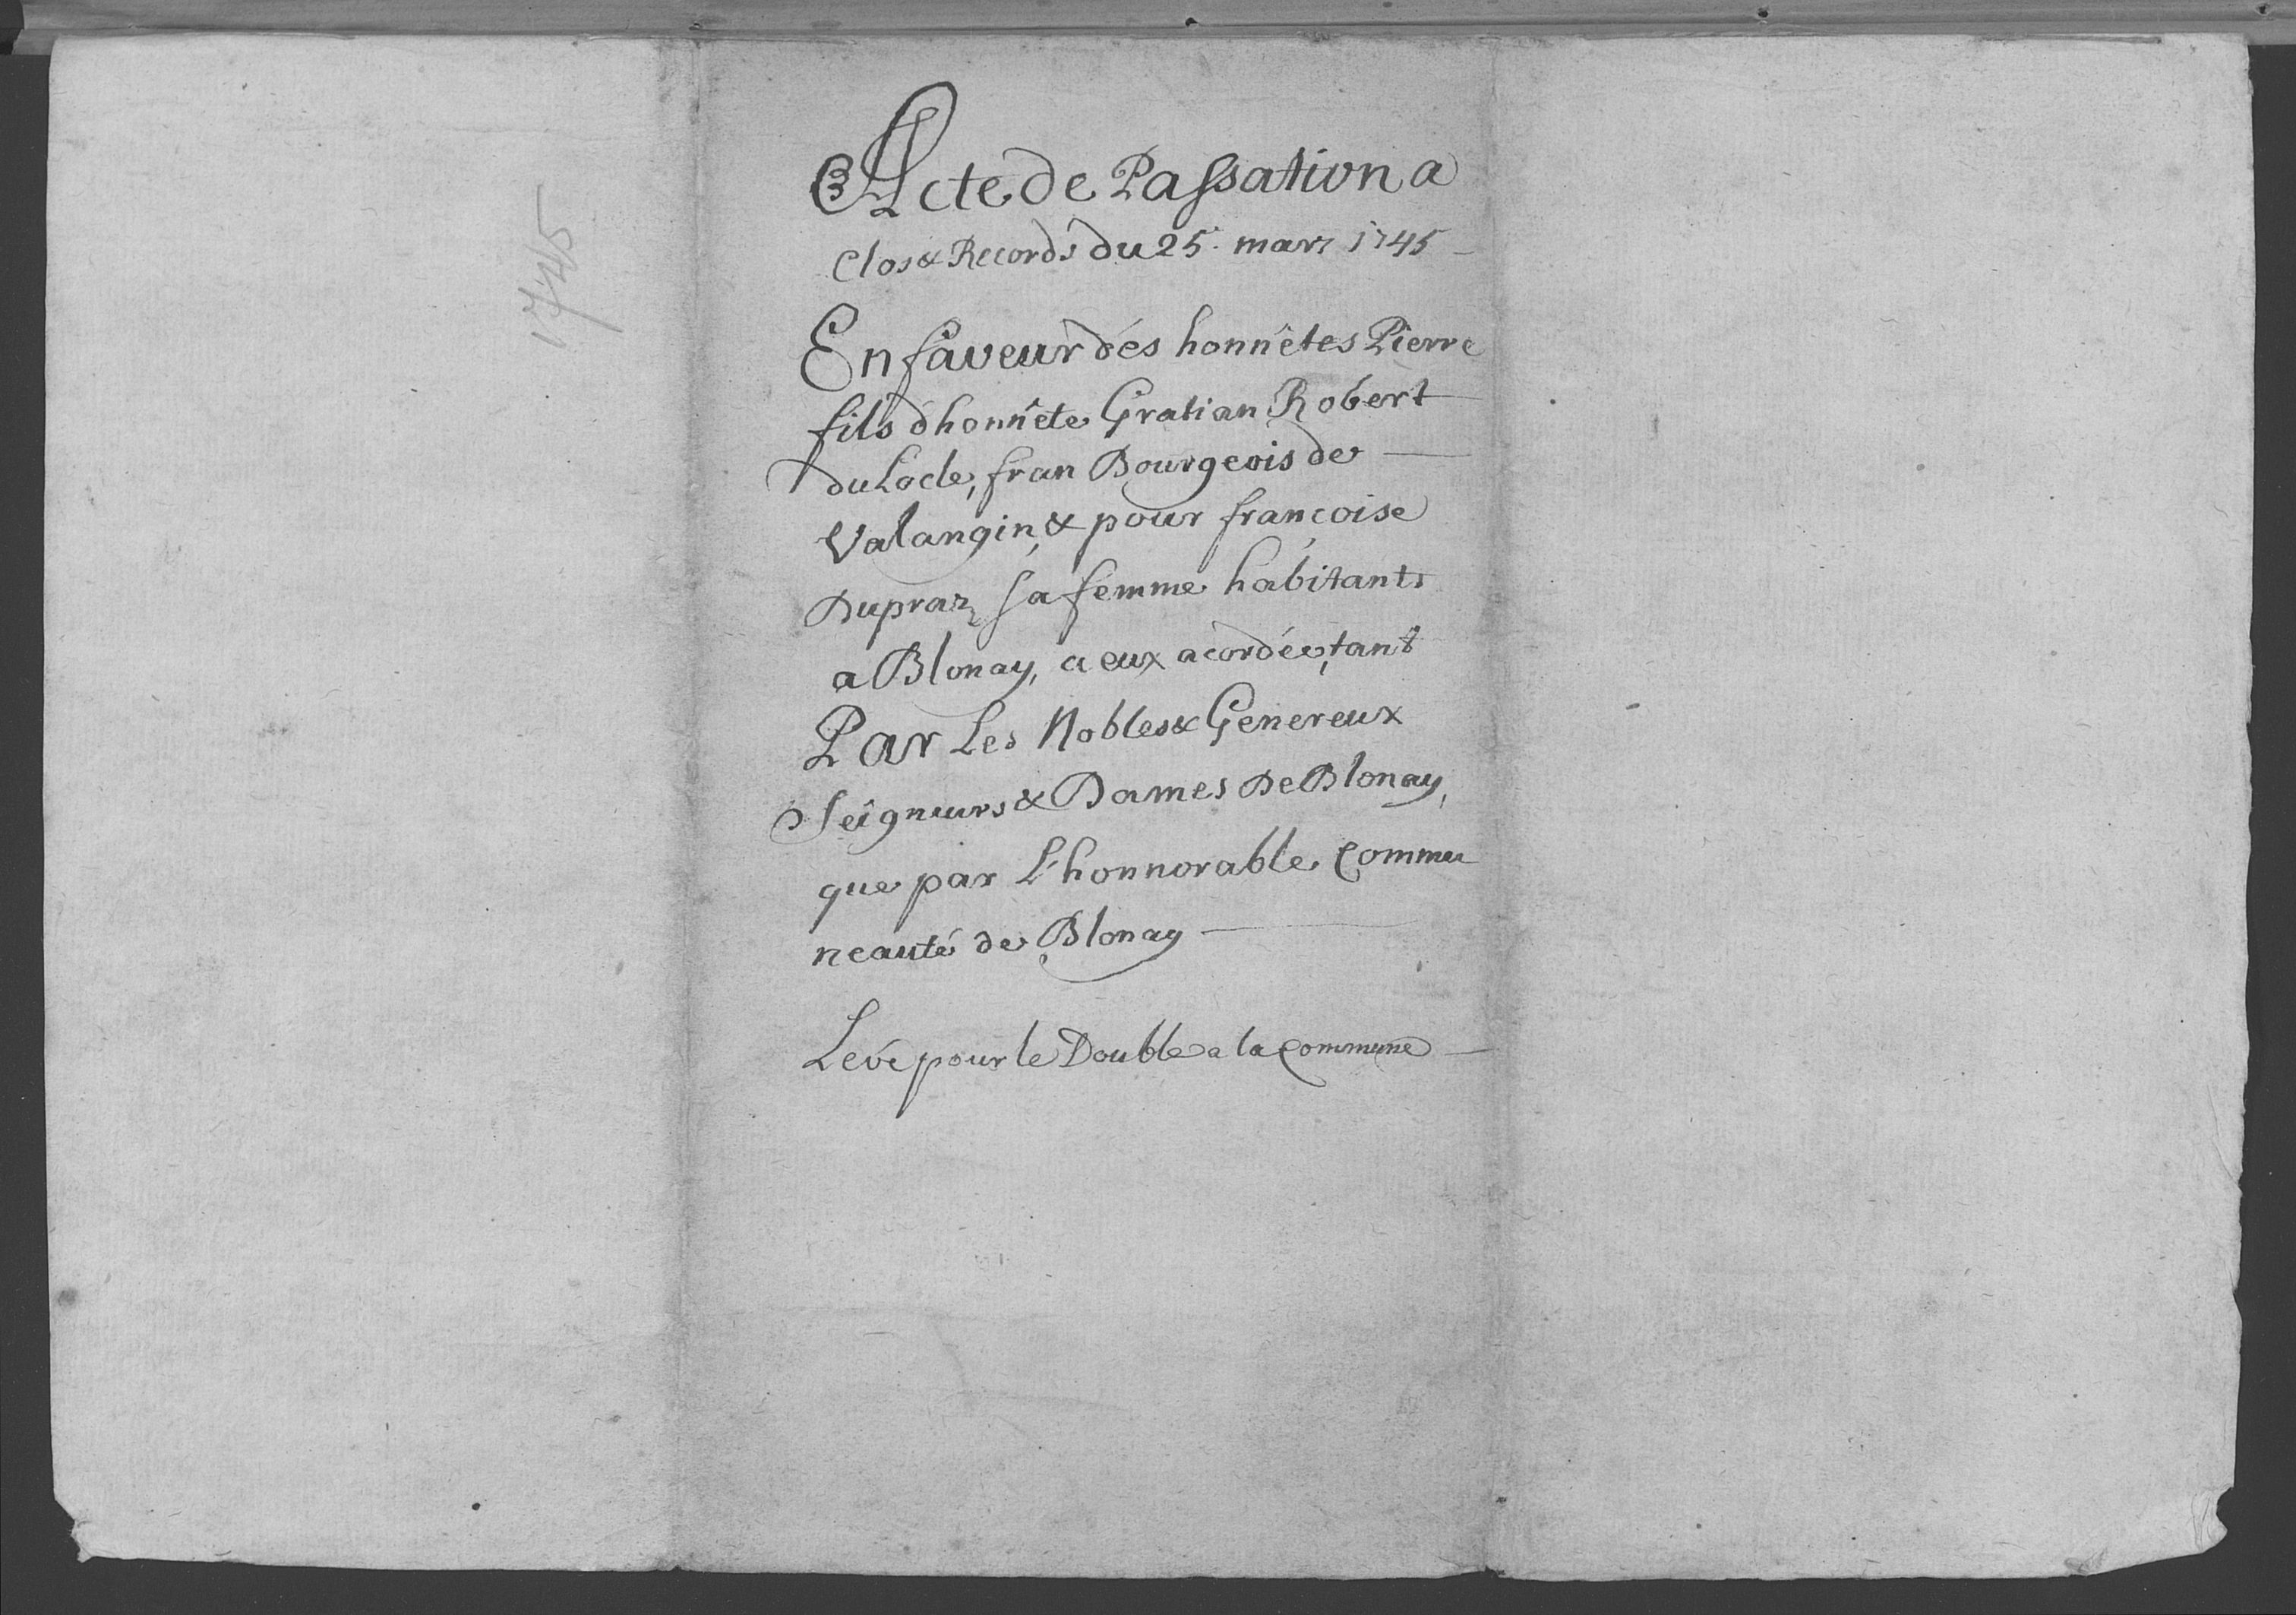 1745
Acte de Passation a
Clos & Records du 25. marz 1745
En faveur dés honnêtes Pierre
fils d'honnête Gratian Robert
du Locle, fran Bourgeois de
Valangin, & pour francoise
Dupraz sa femme habitants
a Blonay, a eux acordée, tant
Par Les Nobles & Genereux
Seigneurs & Dames De Blonay,
que par L'honnorable Commu
neauté de Blonay
Levé pour le Double a la Commune